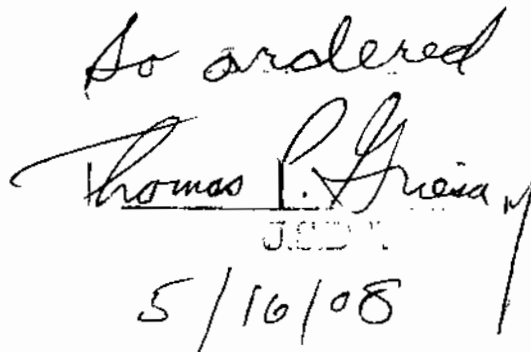 So ordered
Thomas P. Griesa
5/16/08